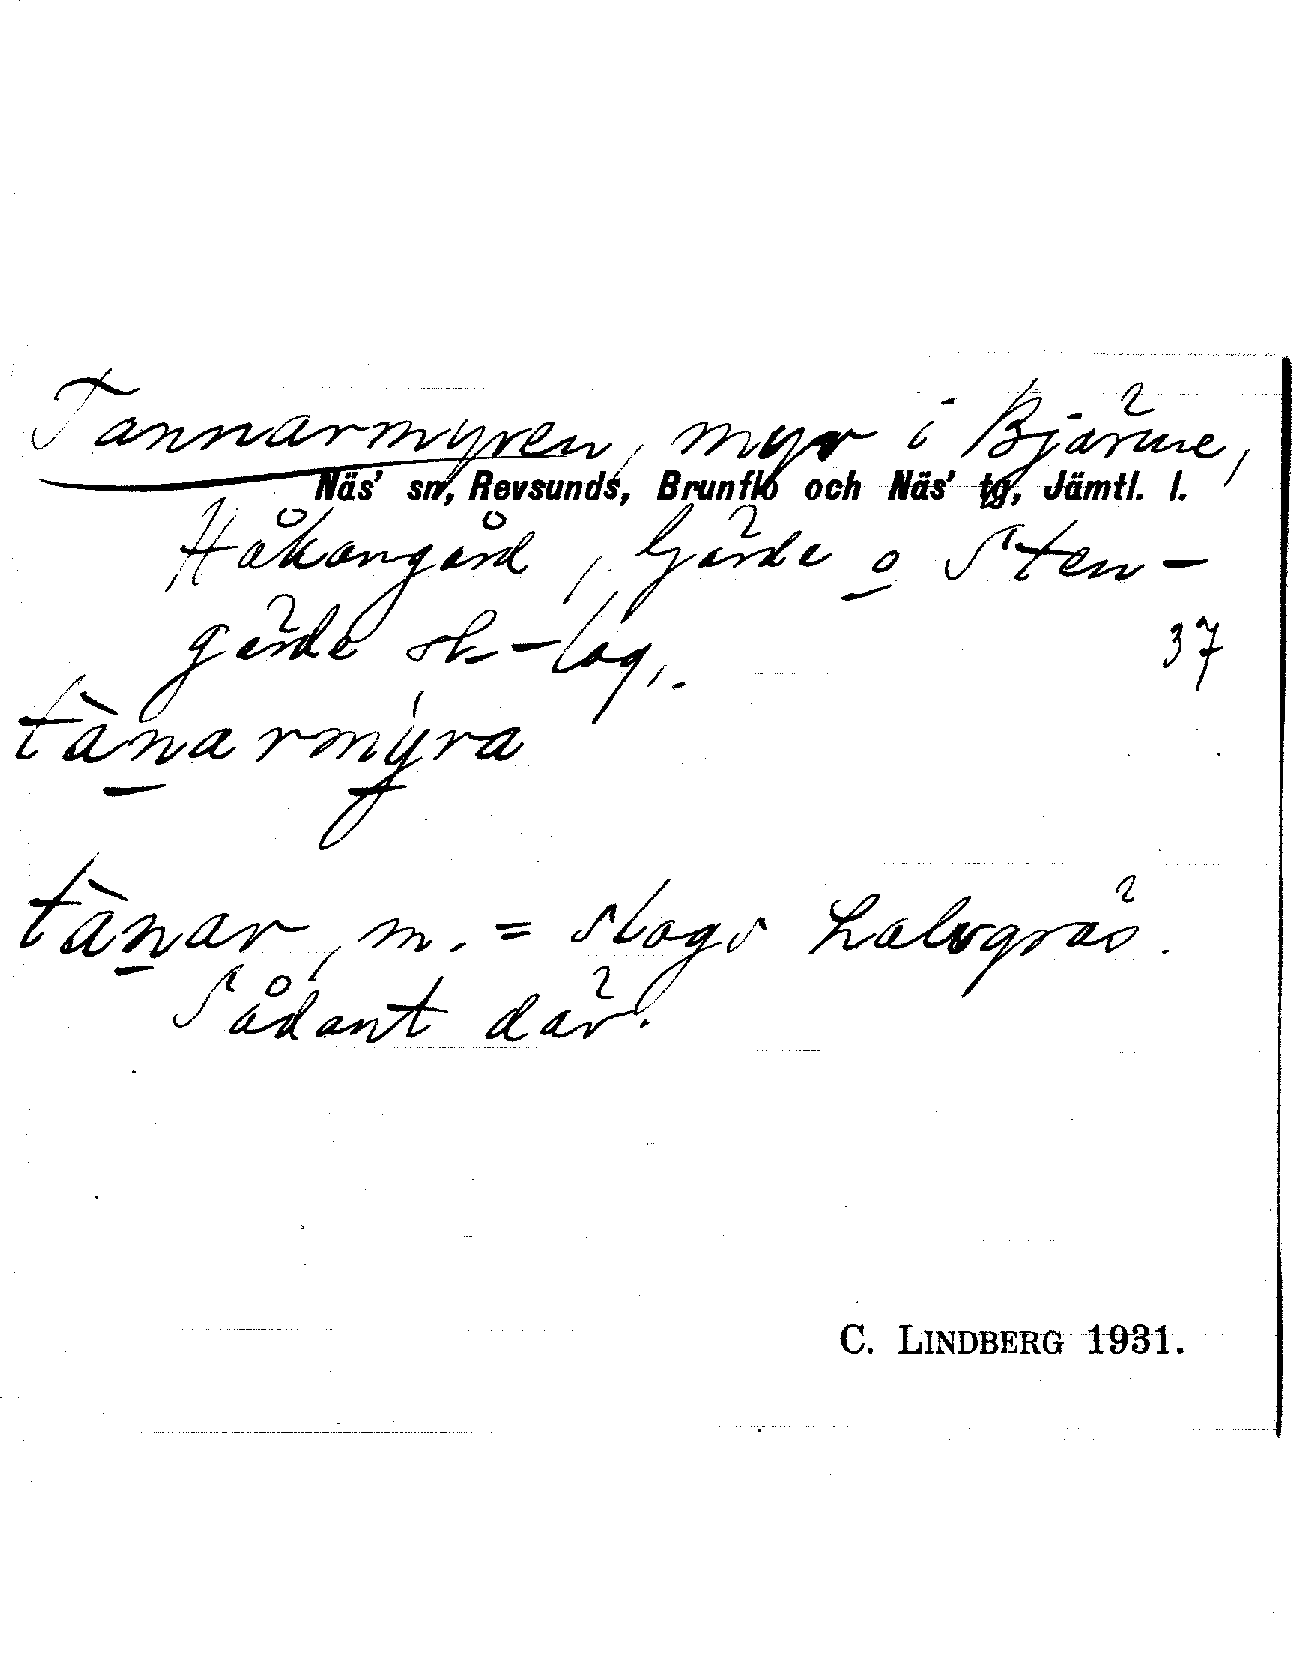 Tannarmyren, myr i Bjärme,
Näs' sn, Revsunds, Brunflo och Näs' tg, Jämtl. l.
Håkangård, Gärde o Sten-
gärde sk-lag.
37
tànarmýra
tànar, m. = slags halvgräs.
Sådant där.
C. LINDBERG 1931.